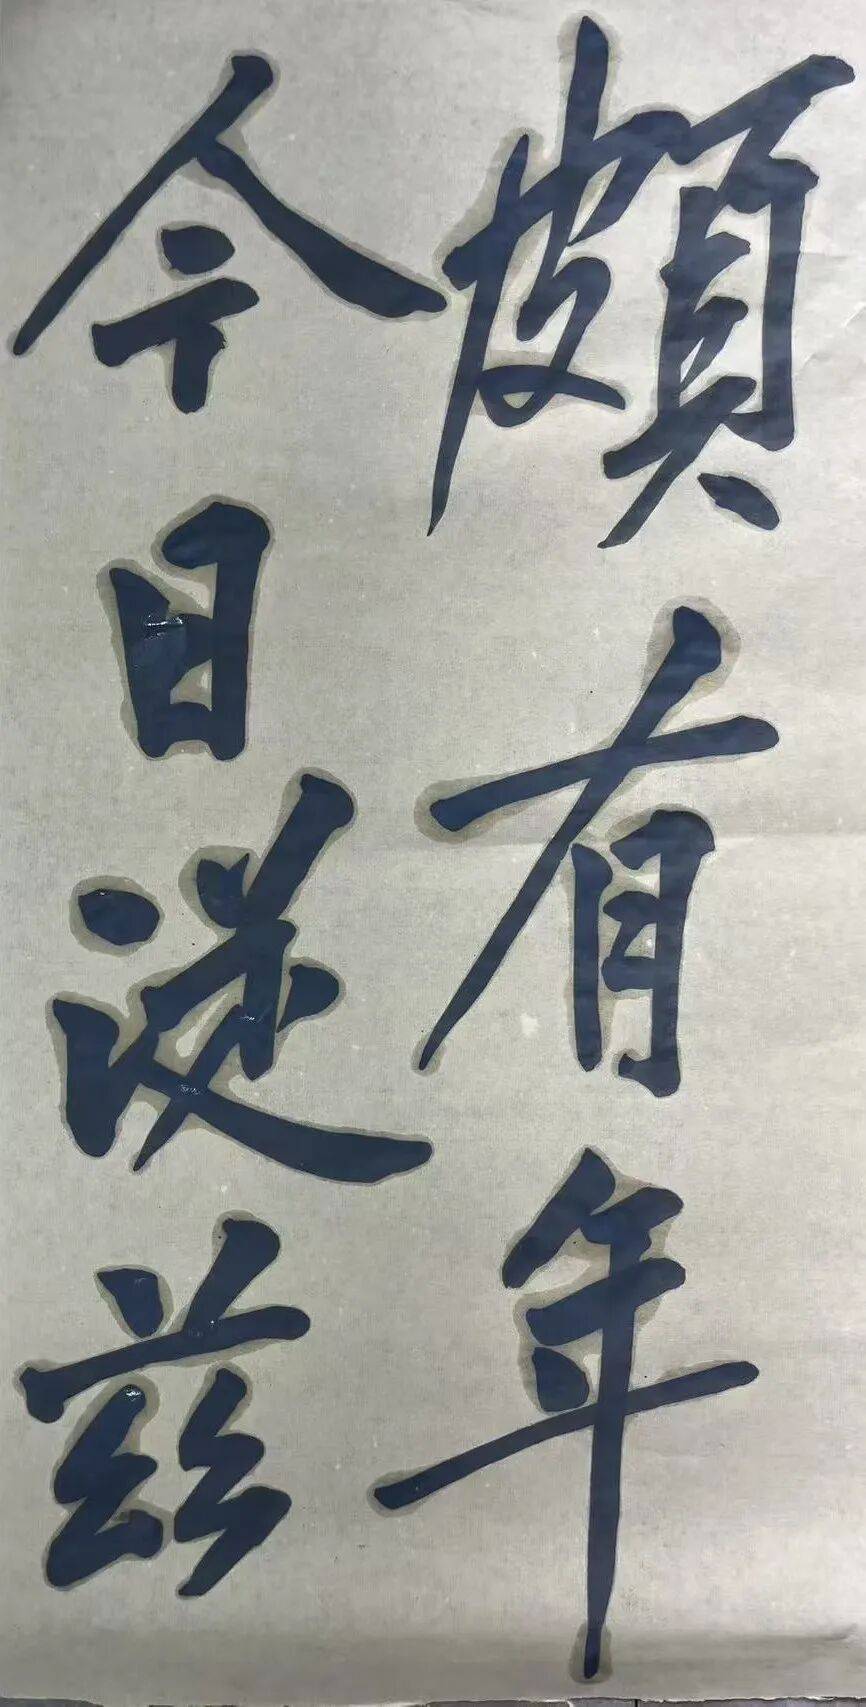 頗有年
今日從茲